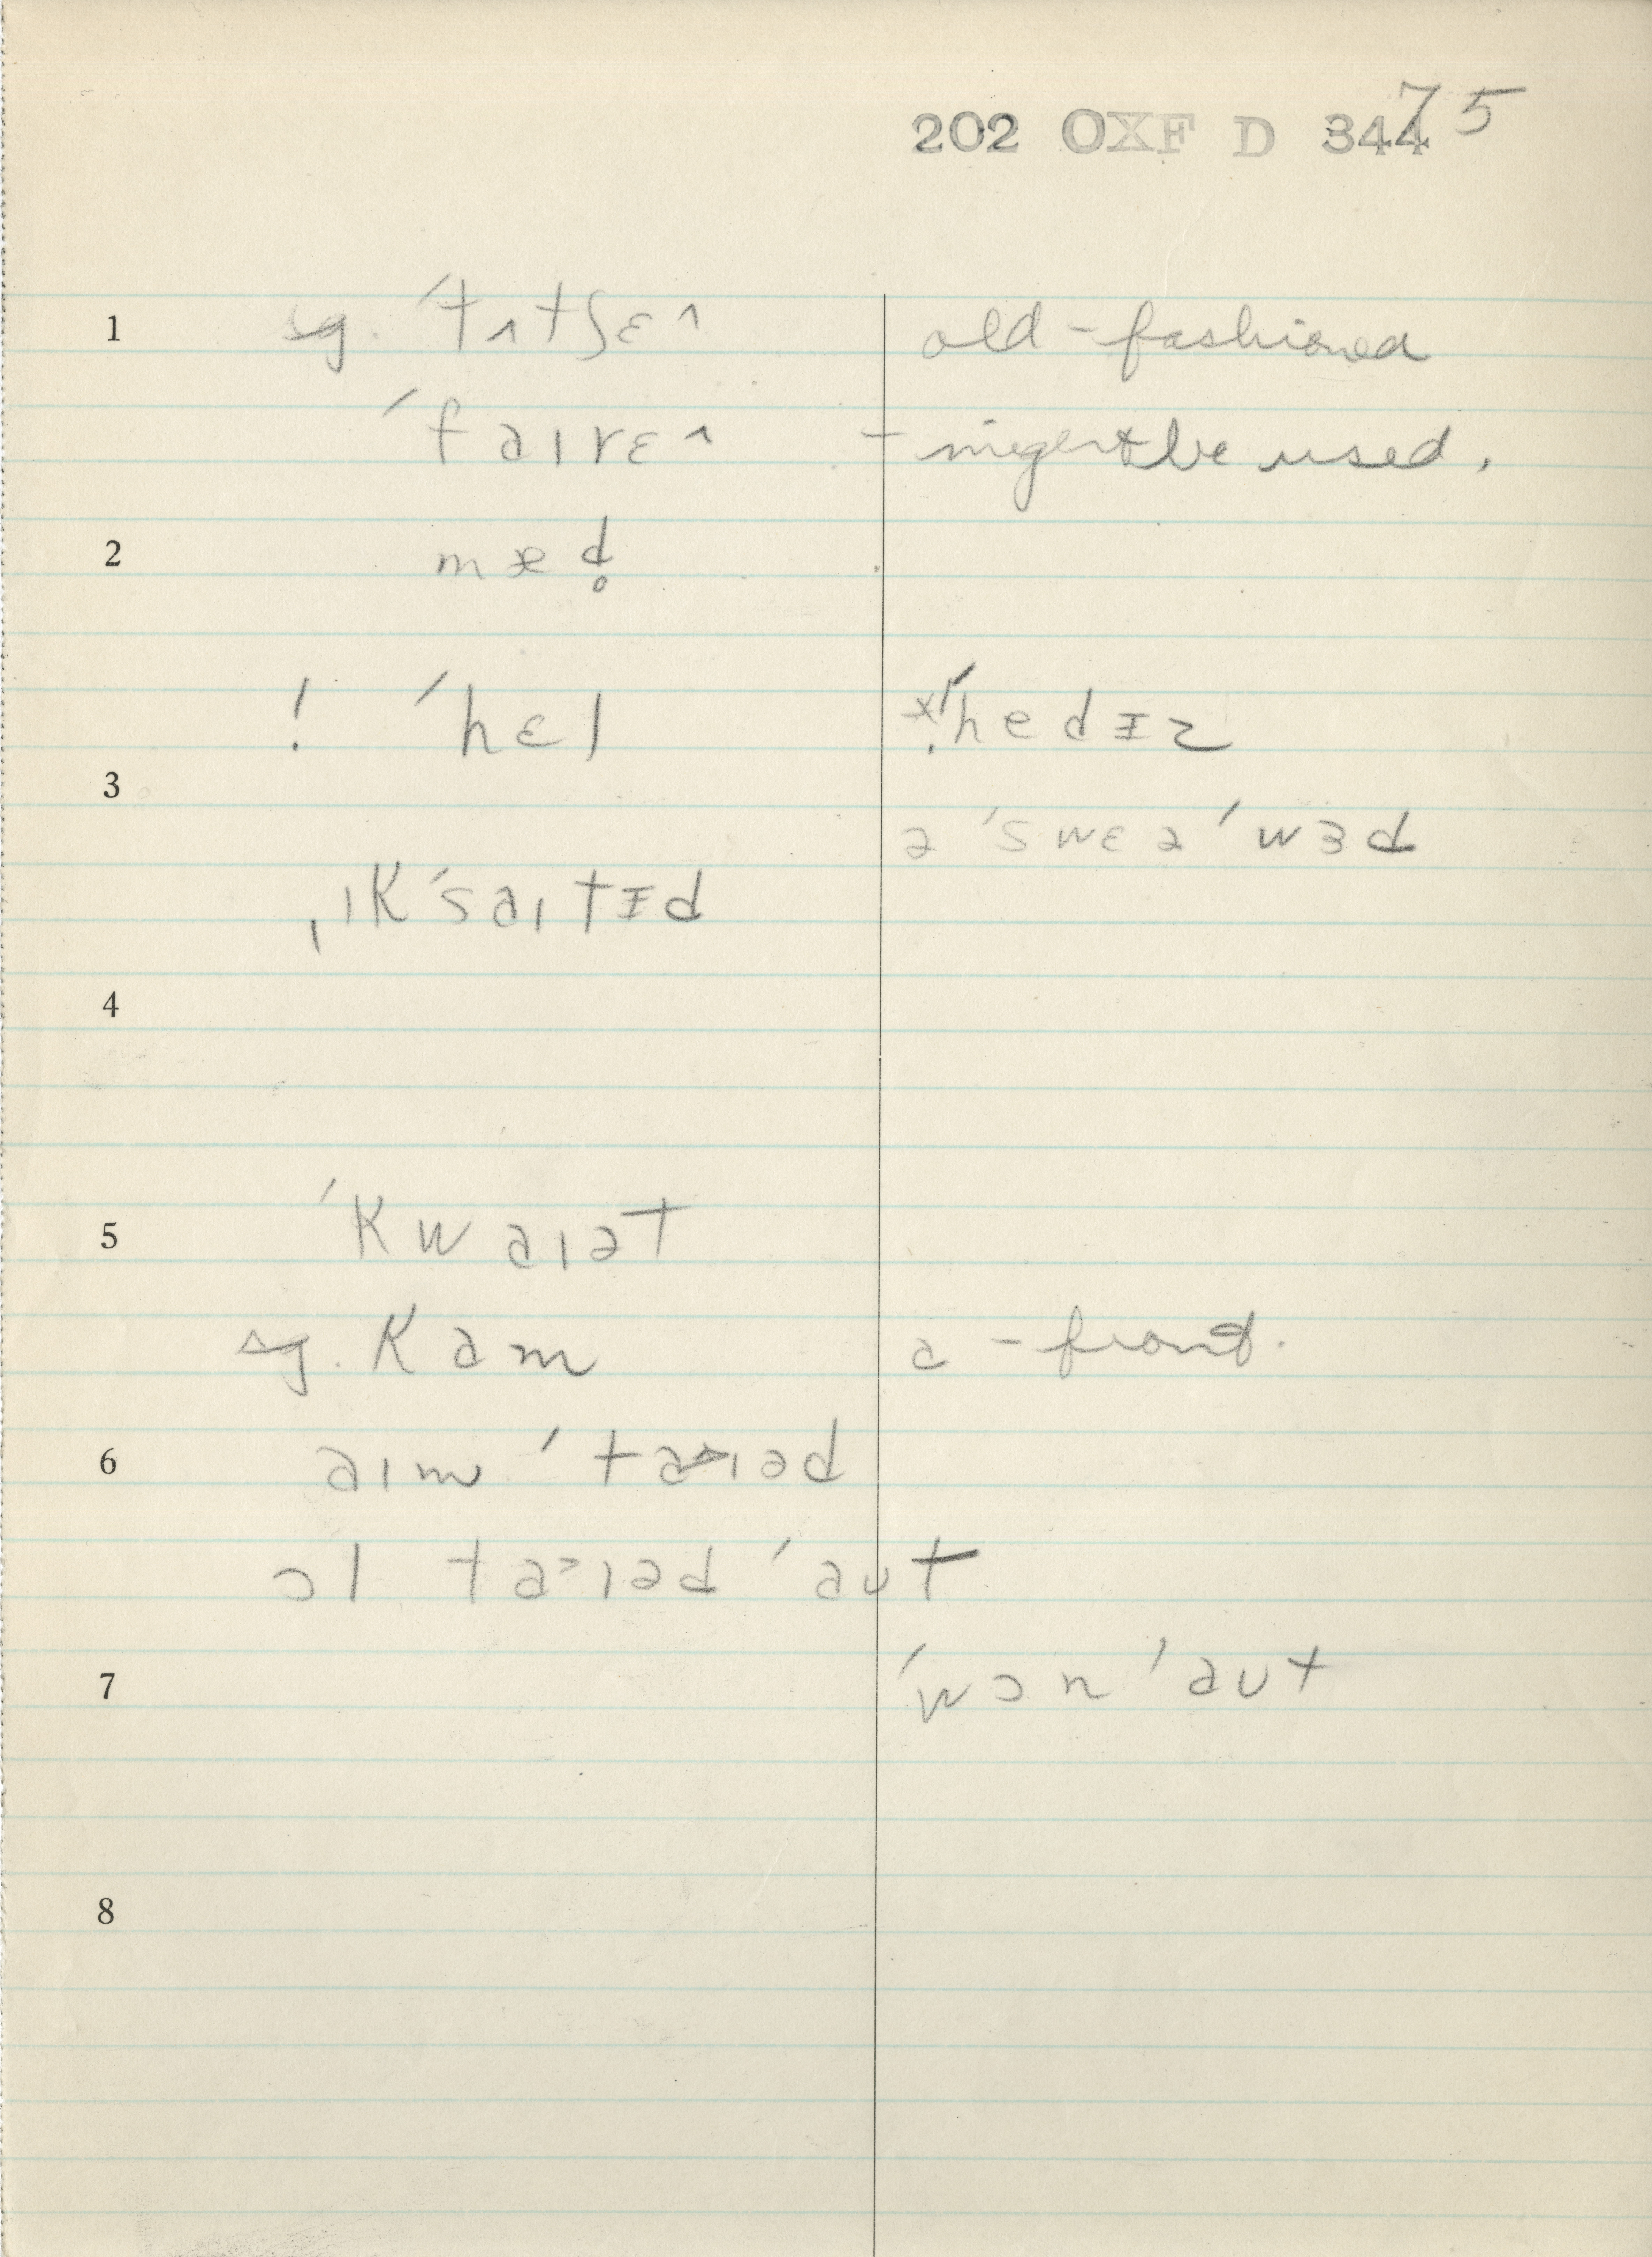 202 OXF D 344 75
1 sg. ˈtʌtʃɛ^ old-fashioned
ˈfaɪrɛ^ - might be used.
2 mæd̥
! ˈhɛl *!ˈhedɪz
3
ə ˈswɛə ˈwɜd
ˌɪkˈsaɪtɪd
4
5 ˈkwaɪət
sg. kam a - front.
6 aɪm ˈtaɪəd
ɔl taɪəd ˈaʊt
7 ˈwɔn ˈaʊt
8